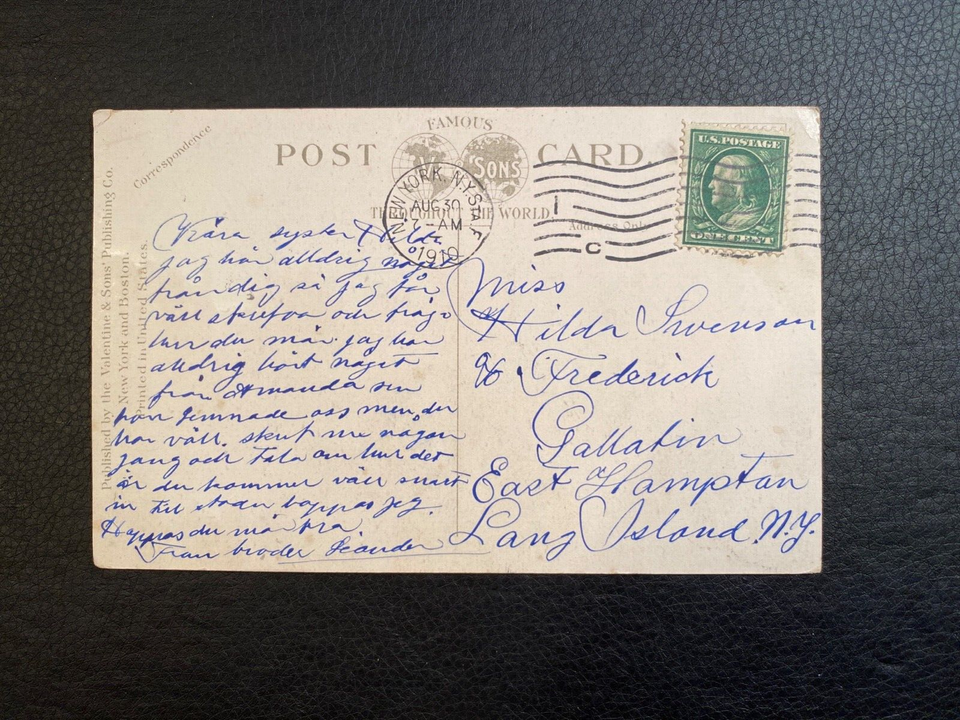 FAMOUS
POST CARD
SONS
THROUGHOUT THE WORLD
Correspondence
Address Only
Published by the Valentine & Sons' Publishing Co.
New York and Boston.
Printed in United States.
U.S. POSTAGE
NEW YORK, N.Y. STA.
AUG 30
7-AM
1910
1
C
Kiära syster Hilda
jag har alldrig något
från dig så jag får
väll skrifva och fråga
hur du mår. jag har
alldrig hört något
från Amanda sen
hon lemnade oss men du
har väll. skrif me någon
gang och tala om hur det
är du kommer väll snart
in til staden hoppas jag.
Hoppas du mår bra
Från broder Leander
Miss
Hilda Swenson
c/o Frederick
Gallatin
East Hampton
Lang Island N.Y.